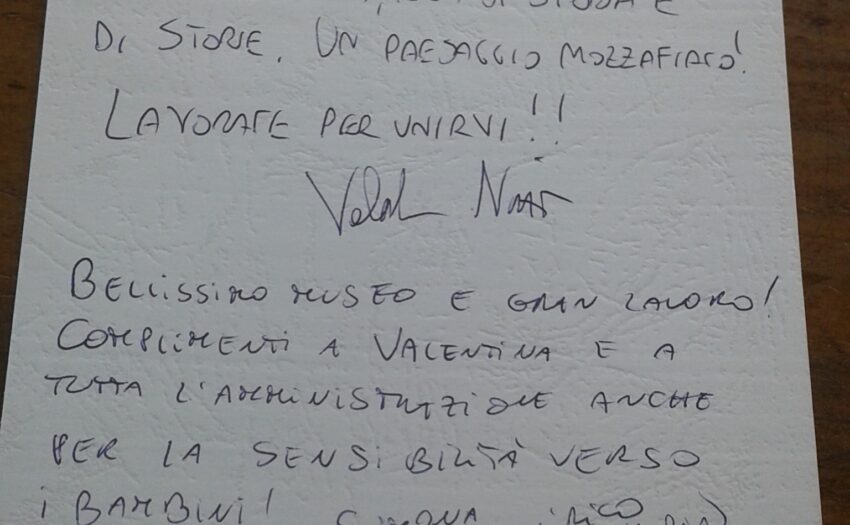 DI STORIE. UN PAESAGGIO MOZZAFIATO!
LAVORATE PER UNIRVI!!
BELLISSIMO MUSEO E GRAN LAVORO!
COMPLIMENTI A VALENTINA E A
TUTTA L'AMMINISTRAZIONE ANCHE
PER LA SENSIBILITÀ VERSO
I BAMBINI!